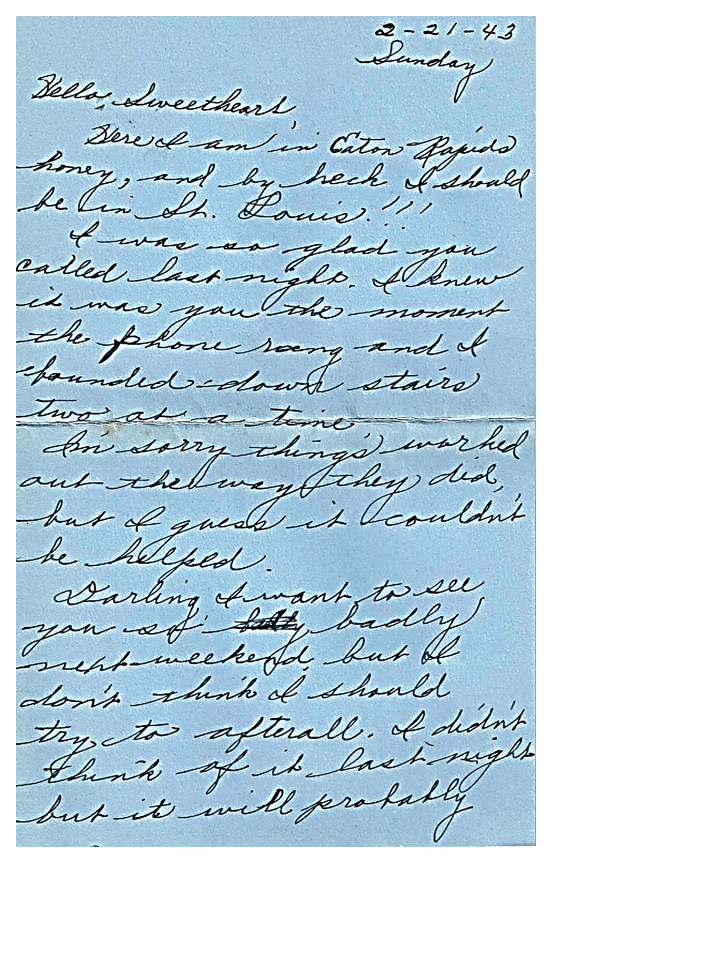 2-21-43
Sunday
Hello, Sweetheart,
Here I am in Eaton Rapids
honey, and by heck I should
be in St. Louis!!!
I was so glad you
called last night. I knew
it was you the moment
the phone rang and I
bounded down stairs
two at a time
I'm sorry things worked
out the way they did,
but I guess it couldn't
be helped.
Darling I want to see
you so badly
next weekend, but I
don't think I should
try to afterall. I didn't
think of it last night
but it will probably